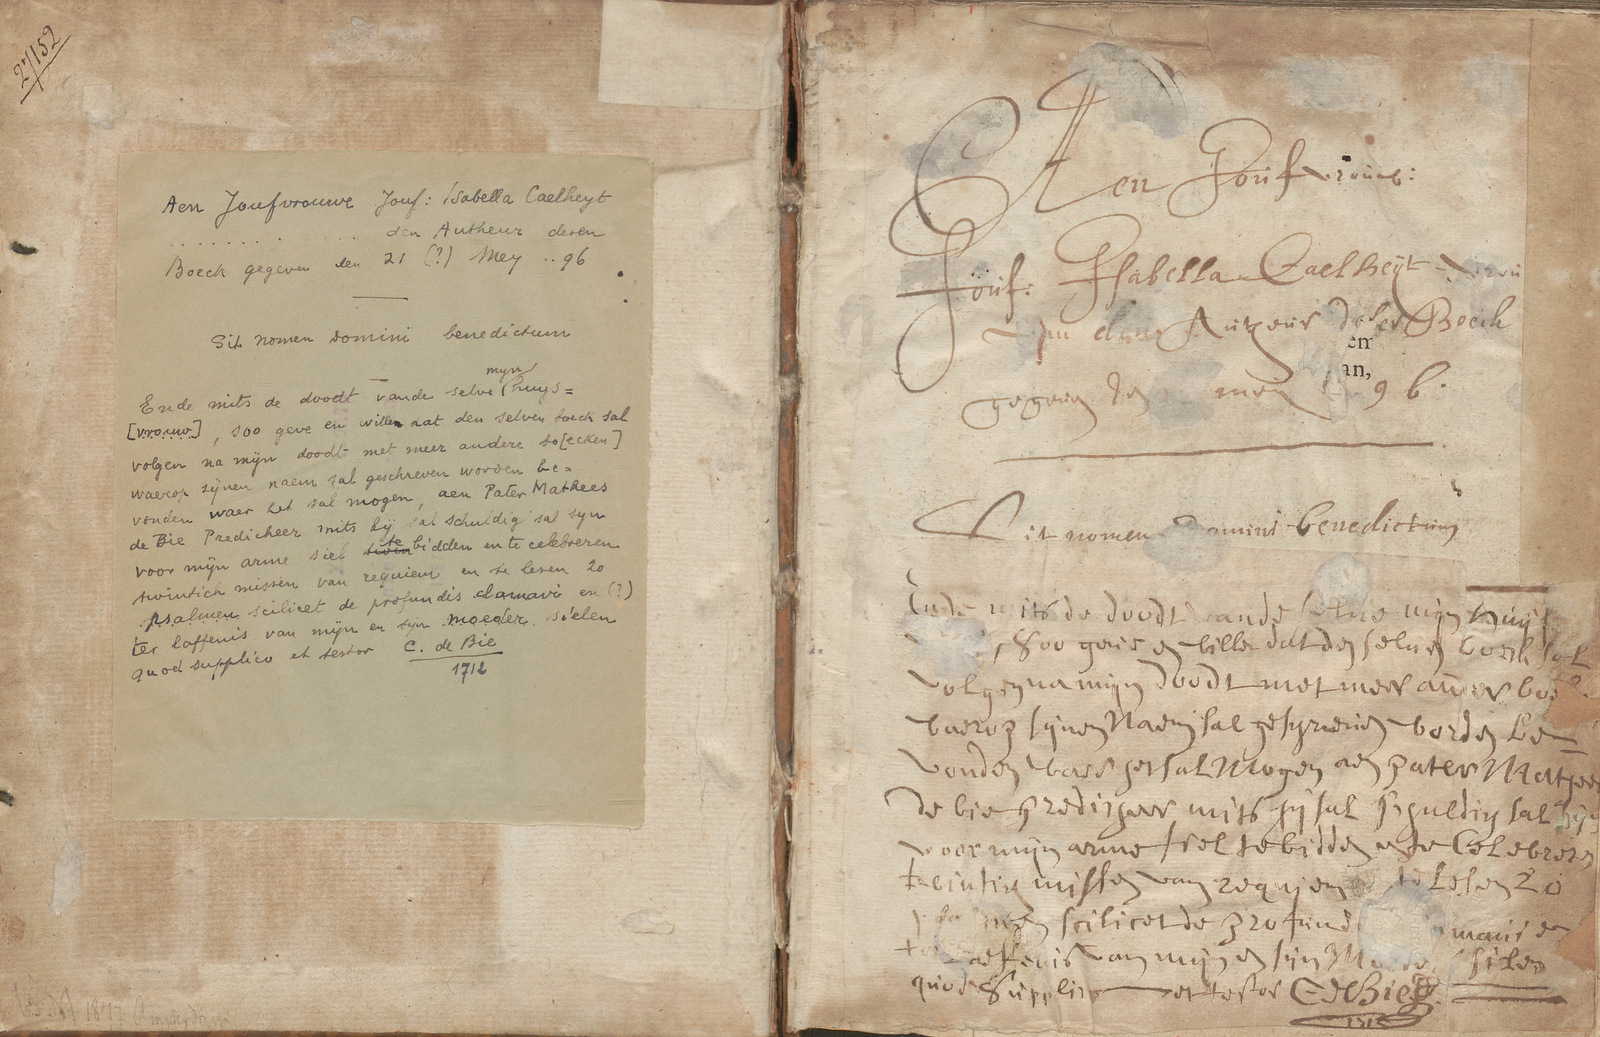 27/152
Aen Joufvrouwe Jouf: Isabella Caelheyt
. . . . . . . . . . . den Autheur desen
Boeck gegeven den 21 (?) Mey .. 96
Sit nomen domini benedictum
myn
Ende mits de doodt vande selve huys=
[vrouw], soo geve en wille dat den selven boeck sal
volgen na mijn doodt met meer andere bo[ecken]
waerop sijnen naem sal geschreven worden be=
vonden waer het sal mogen, aen Pater Mathees
de Bie Predicheer mits hij sal schuldig sal syn
voor mijn arme siel te bidden en te celebreren
twintich missen van requiem en te lesen 20
psalmen scilicet de profundis clamavi en (?)
ter laffenis van mijn en syn moeder sielen
quod supplico et testor C. de Bie
1712
1877 Amsterdam
Aen Joufvrouw:
Jouf: Isabella Caelheyt
den Autheur deser Boeck
em
an,
gegeven den mey 96.
Sit nomen Domini benedictum
Ende mits de doodt vande selve mijn huijs
, Soo geve en wille dat den selven boeck sal
volgen na mijn doodt met meer ander boe
waerop sijnen Naem sal geschreven worden be
vonden waer het sal Mogen aen pater Mathees
de bie predicheer mits hij sal schuldig sal sijn
voor mijn arme siel te bidden en te Celebreren
twintich missen van requiem te lesen 20
scilicet de profund mavi en
laeffenis van mijn en sijn sielen
quod Supplico et testor C de Bie
1712